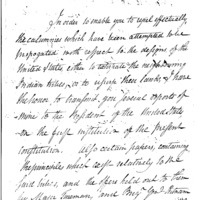 In order to enable you to repel effectually
the calumnies which have been attempted to be
propagated with respect to the designs of the
United States, either to extirpate the neighbouring
Indian tribes, or to usurp their lands, I have
the honor to transmit you several reports of
mine to the President of the United States
on the first institution of the present
Constitution. also certain papers, containing
the principles which relatively to the
said Indians, and the offers held out to them
by Major Trueman, and Brigr Genl Putnam